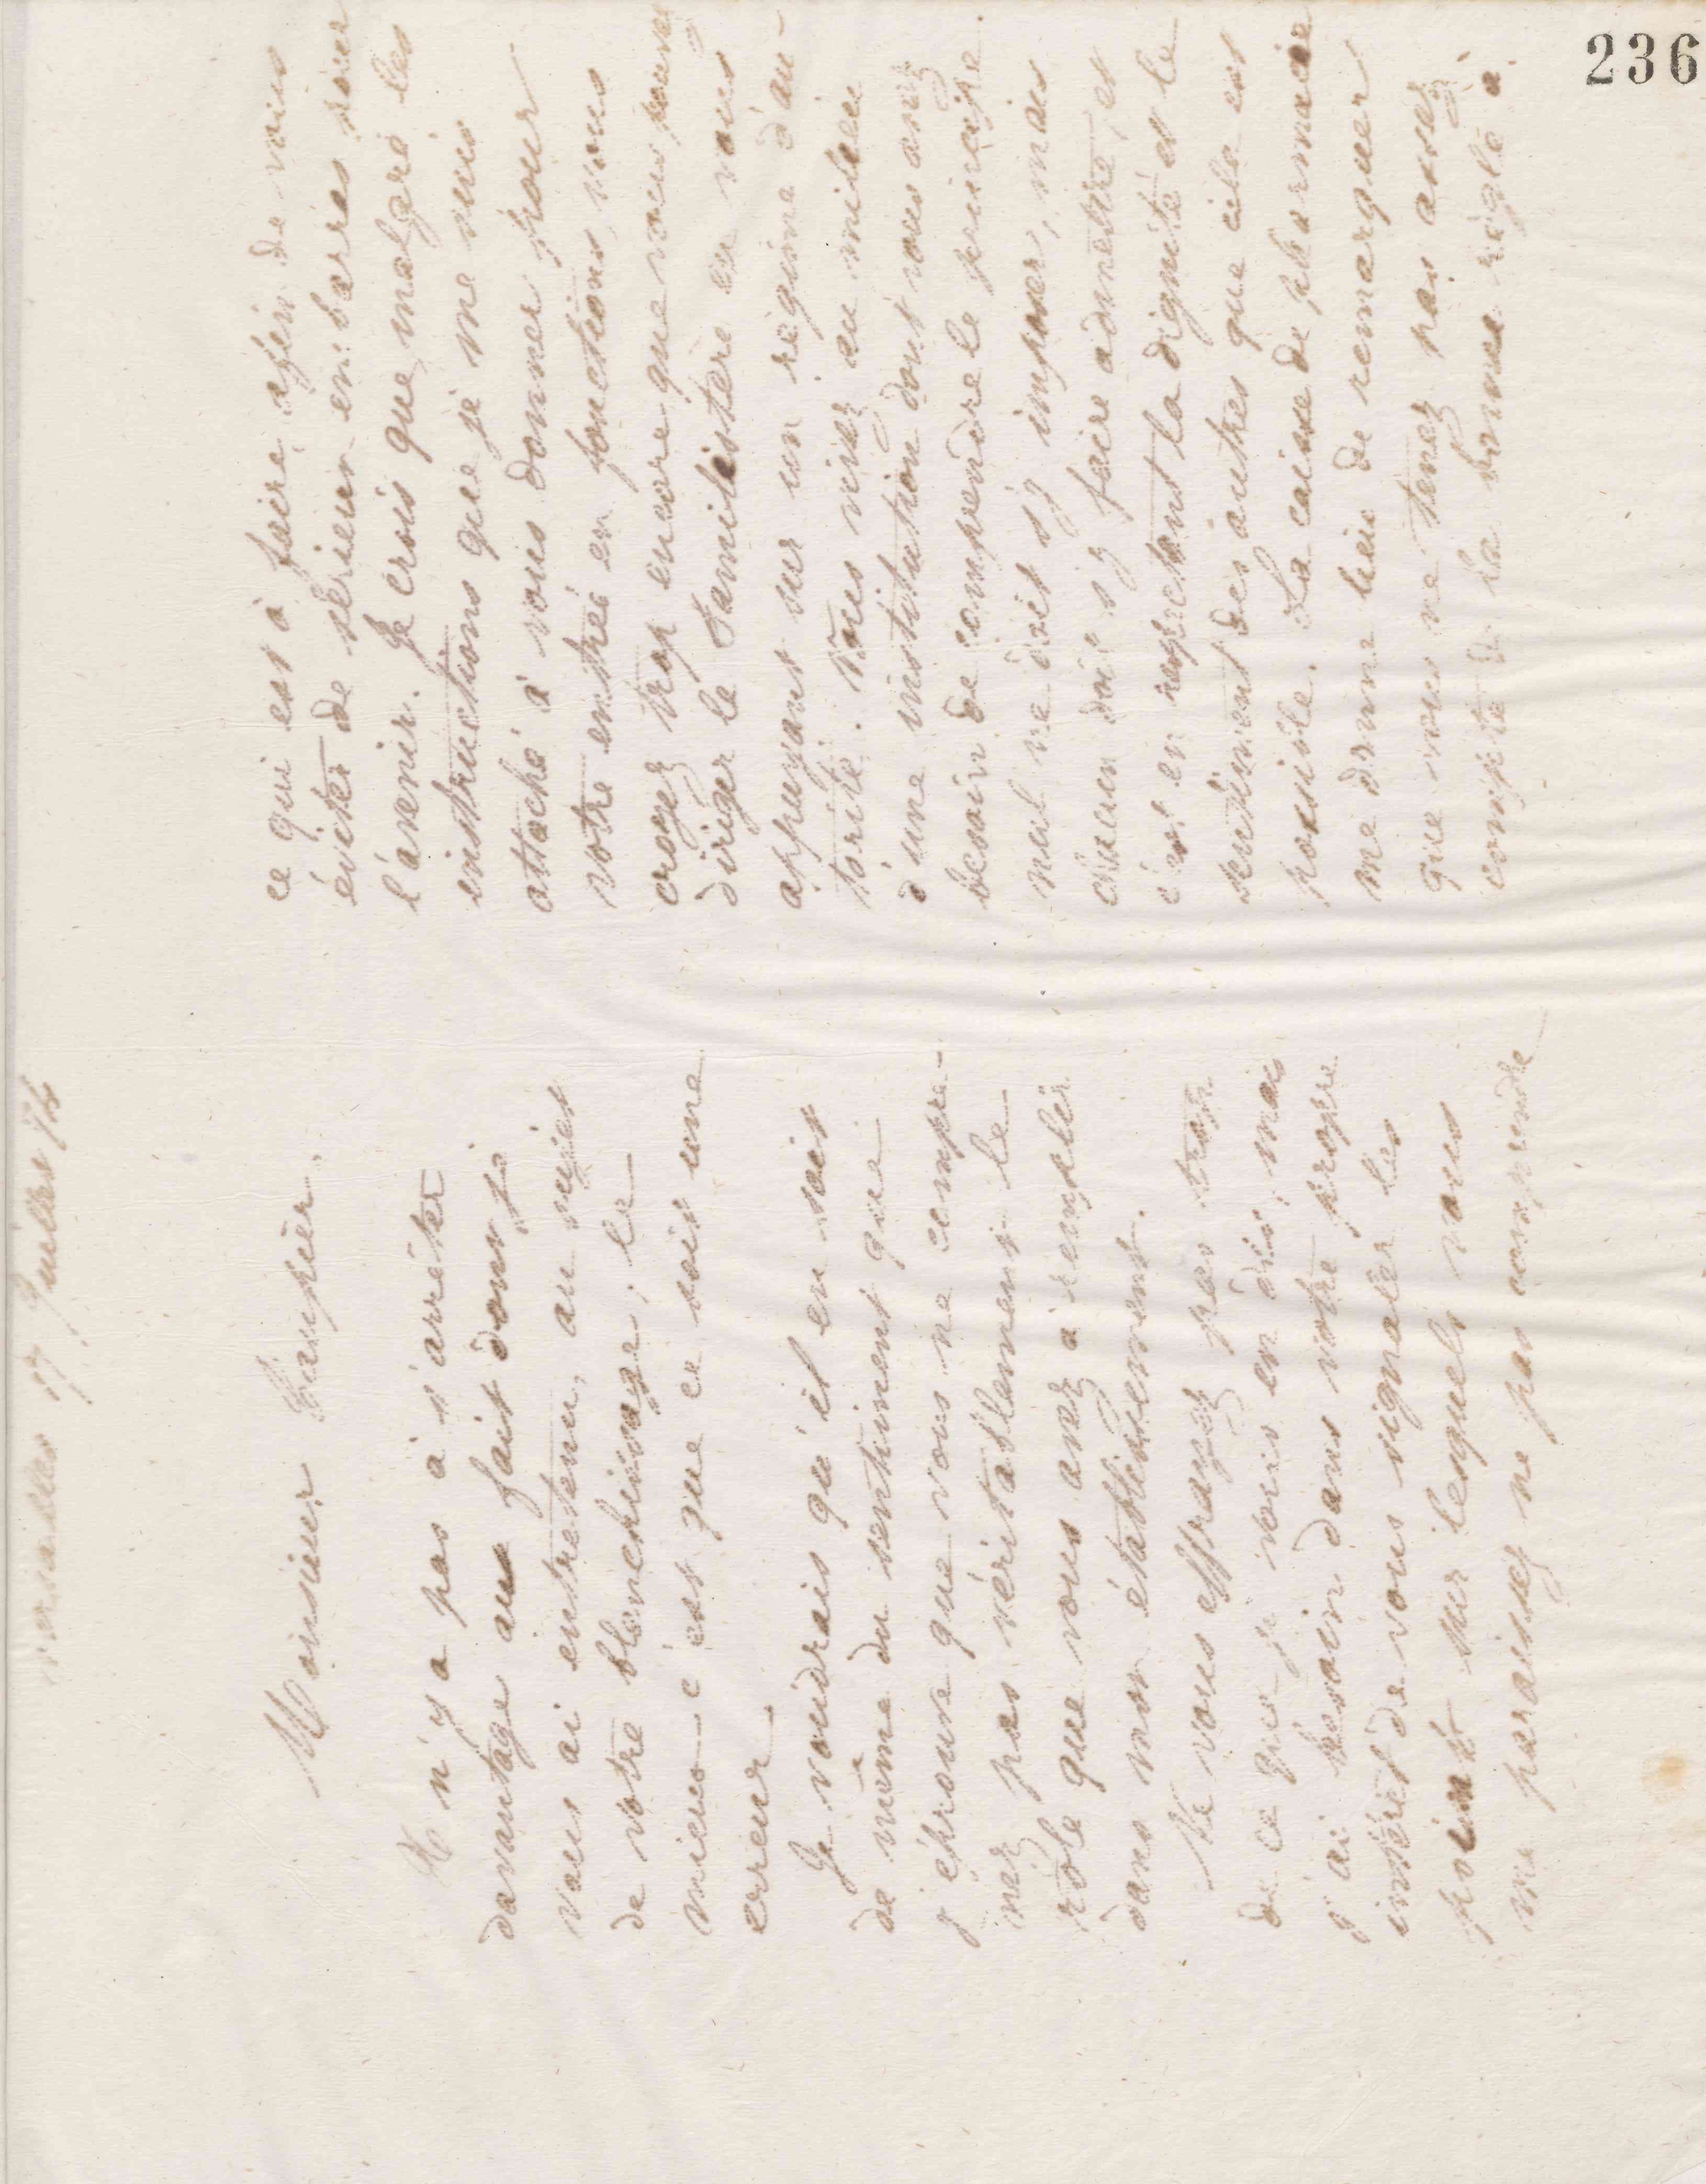 236
Versailles 17 Juillet 74
Monsieur
Il n'y a pas à s'arrêter
davantage au fait dont je
vous ai entretenu, au sujet
de votre blanchissage; le
mieux c'est que ce soit une
erreur.
Je voudrais qu'il en soit
de même du sentiment que
j'éprouve que vous ne compre-
nez pas véritablement le
rôle que vous avez à remplir
dans mon établissement.
Ne vous effrayez pas trop
de ce que je vous en dis, mais
j'ai besoin dans votre propre
intérêt de vous signaler les
points sur lesquels vous
me paraissez ne pas comprendre
ce qui est à faire, afin de vous
éviter de sérieux embarras pour
l'avenir. Je crois que malgré les
instructions que je me suis
attaché à vous donner pour
votre entrée en fonctions, vous
croyez trop encore que vous pouvez
diriger le Familistère en vous
appuyant sur un régime d'au-
torité. Vous vivez au milieu
d'une institution dont vous avez
besoin de comprendre le principe.
nul ne doit s'y imposer, mais
chacun doit s'y faire admettre, et
c'est en respectant la dignité et le
sentiment des autres que cela est
possible. La caisse de pharmacie
me donne lieu de remarquer
que vous ne tenez pas assez
compte de la bonne règle à